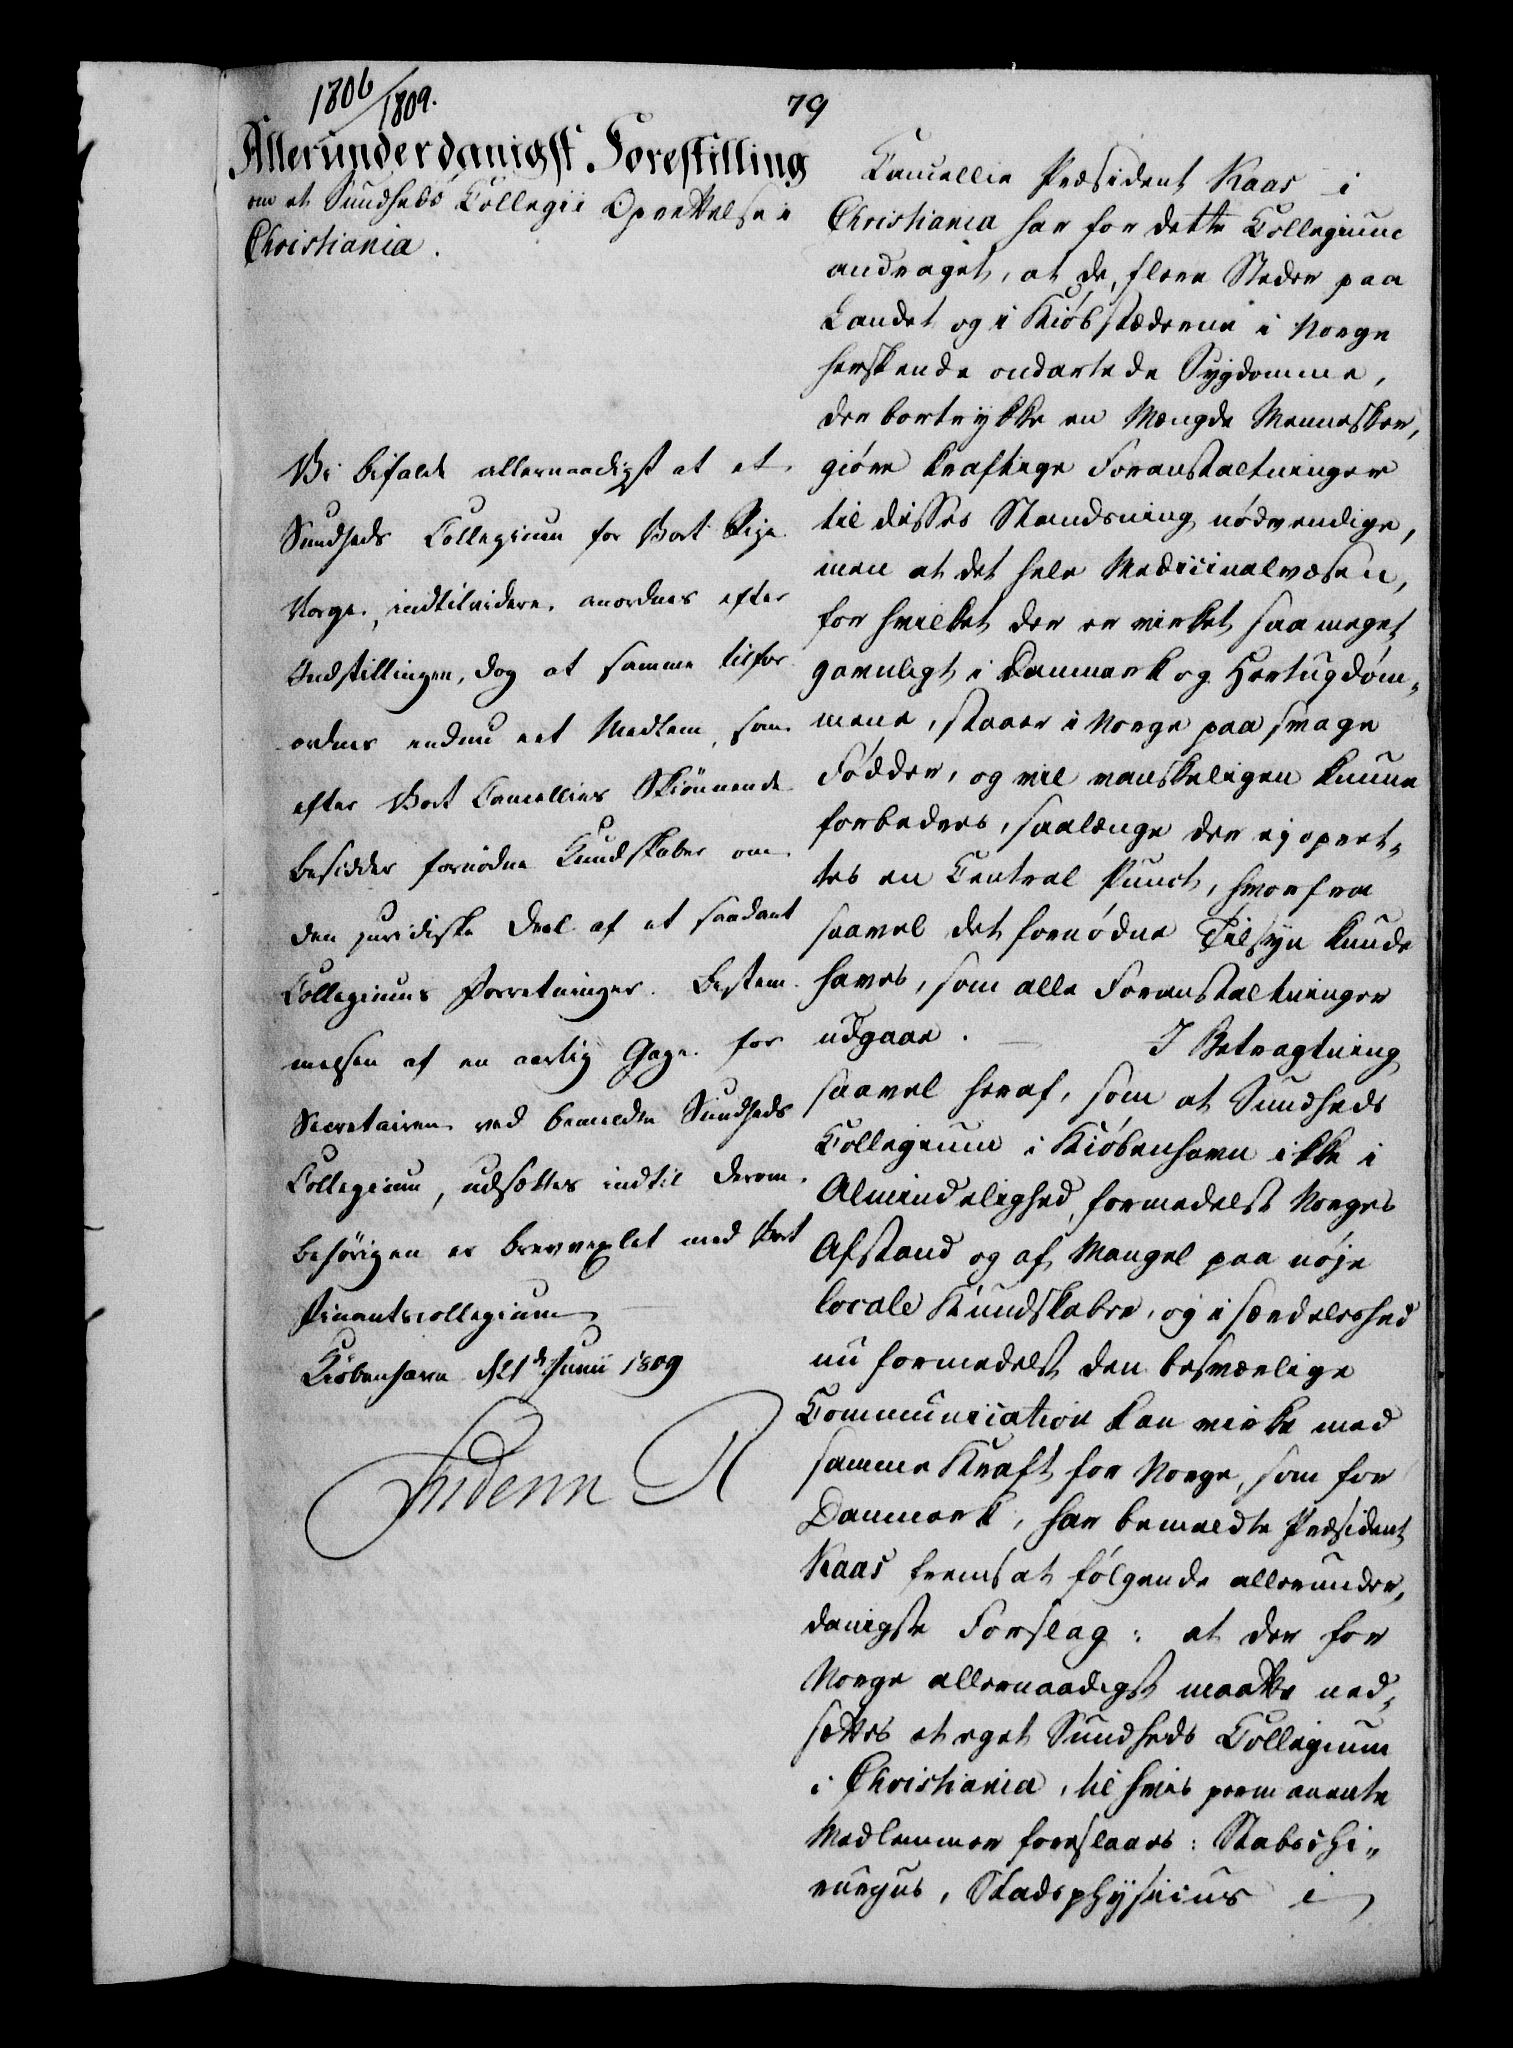 1806/1809.
79
Allerunderdanigst Forestilling
om et Sundheds Collegii Oprettelse i
Christiania.
Vi bifalde allernaadigst at et
Sundheds Collegium for Vort Rige
Norge, indtilvidere, anordnes efter
Indstillingen, dog at samme tilfor-
ordnes endnu eet Medlem, som
efter Vort Cancellies Skiønnende
besidder fornødne Kundskaber om
den juridiske Deel af et saadant
Collegiums Forretninger. Bestem-
melsen af en aarlig Gage for
Secretairen ved bemeldte Sundheds
Collegium, udsættes indtil derom
behørigen er brevvexlet med Vort
Finantscollegium
Kiøbenhavn d 21de Junii 1809
Friderich R
Cancellie Præsident Kaas i
Christiania har for dette Collegium
andraget, at de, flere Steder paa
Landet og i Kiøbstæderne i Norge
herskende ondartede Sygdomme,
der bortrykke en Mængde Mennesker,
giøre kraftige Foranstaltninger
til disses Standsning nødvendige,
men at det hele Medicinalvæsen,
for hvilket der er virket saa meget
gavnligt i Danmark og Hertugdøm„
mene, staaer i Norge paa svage
Fødder, og vil vanskeligen kunne
forbedres, saalænge der ej opret„
tes en Central Punct, hvorfra
saavel det fornødne Tilsyn kunde
haves, som alle Foranstaltninger
udgaae. — I Betragtning
saavel heraf, som at Sundheds
Collegium i Kiøbenhavn ikke i
Almindelighed, formedelst Norges
Afstand og af Mangel paa nøje
locale Kundskaber, og i særdeleshed
nu formedelst den besværlige
Communication kan virke med
samme Kraft for Norge, som for
Danmark, har bemeldte Præsident
Kaas fremsat følgende allerunder„
danigste Forslag: at der for
Norge allernaadigst maatte ned„
sættes et eget Sundheds Collegium
i Christiania, til hvis permanente
Medlemmer foreslaaes: Stabschi„
rurgus, Stadsphysicus i